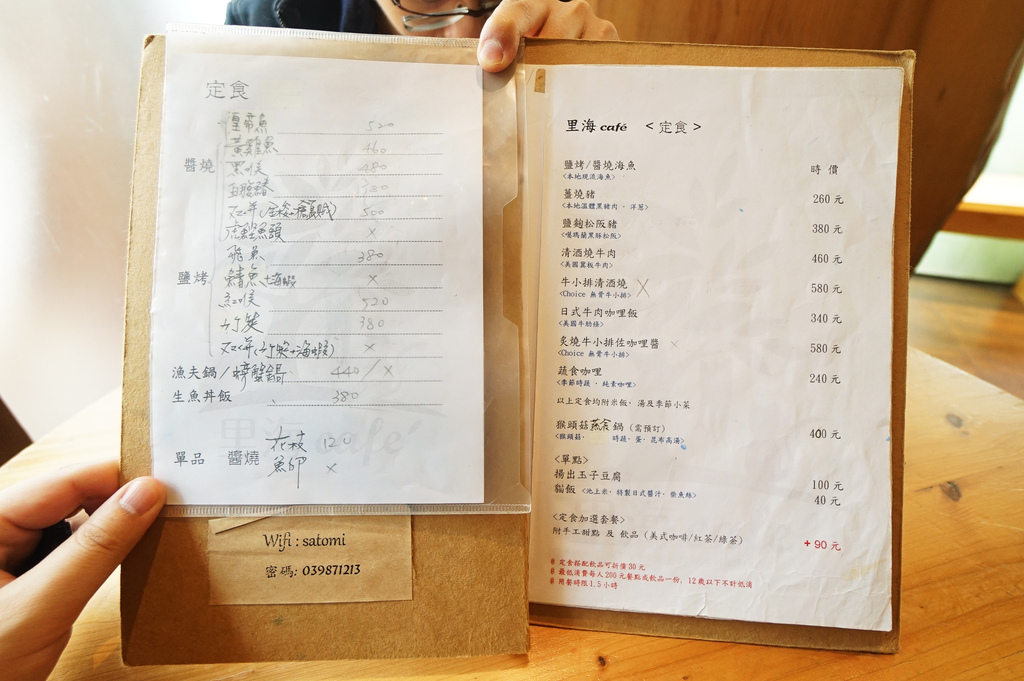 定食
皇帝魚 520
黃雞魚 460
醬燒
黑喉 480
380
500
×
飛魚 380
鹽烤
鯖魚+海蝦 ×
紅喉 520
竹筴 380
(竹筴+海蝦) ×
漁夫鍋/螃蟹鍋 440/×
生魚丼飯 380
單品 醬燒
花枝 120
魚卵 ×
Wifi : satomi
密碼: 039871213
里海 café <定食>
鹽烤/醬燒海魚 時價
<本地現流海魚>
薑燒豬 260元
<本地溫體黑豬肉 · 洋蔥>
鹽麴松阪豬 380元
<噶瑪蘭黑豚松阪>
清酒燒牛肉 460元
<美國翼板牛肉>
牛小排清酒燒 × 580元
<Choice 無骨牛小排>
日式牛肉咖哩飯 340元
<美國牛肋條>
炙燒牛小排佐咖哩醬 × 580元
<Choice 無骨牛小排>
蔬食咖哩 240元
<季節時蔬 · 純素咖哩>
以上定食均附米飯· 湯及季節小菜
猴頭菇蔬食鍋 (需預訂) 400元
<猴頭菇· 時蔬·蛋·昆布高湯>
<單點>
揚出玉子豆腐 100元
貓飯 <池上米·特製日式醬汁·柴魚絲> 40元
<定食加選套餐>
附手工甜點 及 飲品 (美式咖啡/紅茶/綠茶) +90元
※ 定食搭配飲品可折價30元
※ 最低消費每人200元餐點或飲品一份，12歲以下不對低消
※ 用餐時限1.5小時